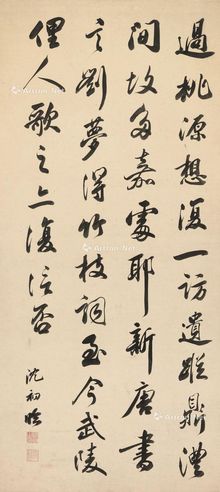 過桃源想復一訪遺蹤鼎澧
間故多嘉處耶新唐書
言劉夢得竹枝詞至今武陵
俚人歌之亦復信否
沈初臨